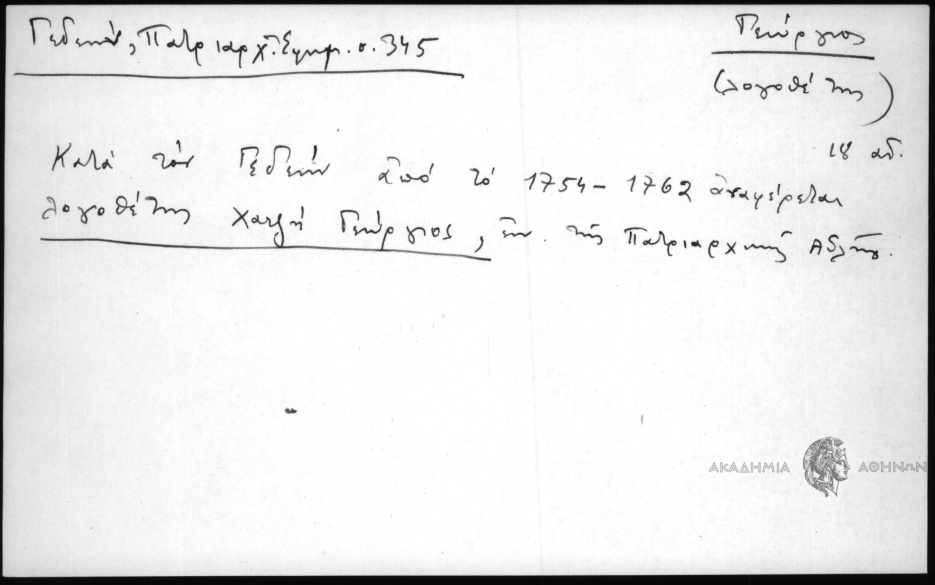 Γεδεών, Πατριαρχ. Εφημ. σ. 345
Γεώργιος
(λογοθέτης)
18 αἰ.
Κατά τόν Γεδεών ἀπό τό 1754 - 1762 ἀναφέρεται
λογοθέτης Χατζῆ Γεώργιος, ἐν τῆς Πατριαρχικῆς Αὐλῆς.
ΑΚΑΔΗΜΙΑ ΑΘΗΝΩΝ